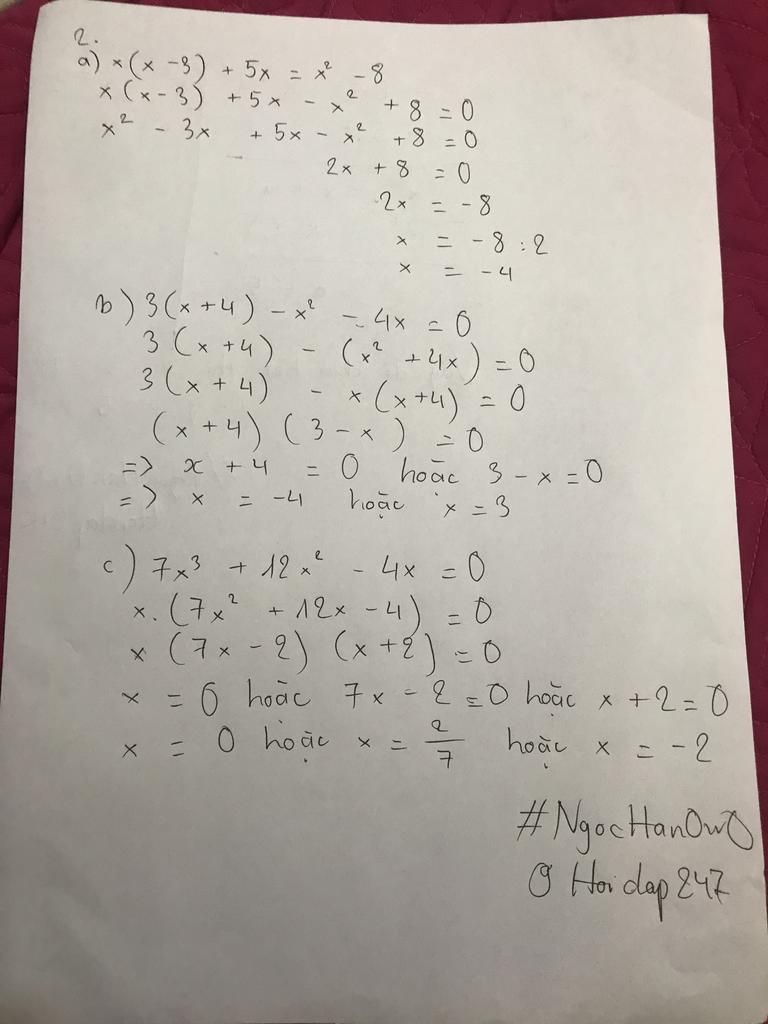 2.
a) x(x - 3) + 5x = x² - 8
x(x - 3) + 5x - x² + 8 = 0
x² - 3x + 5x - x² + 8 = 0
2x + 8 = 0
2x = -8
x = -8 : 2
x = -4
b) 3(x + 4) - x² - 4x = 0
3(x + 4) - (x² + 4x) = 0
3(x + 4) - x(x + 4) = 0
(x + 4)(3 - x) = 0
=> x + 4 = 0 hoặc 3 - x = 0
=> x = -4 hoặc x = 3
c) 7x³ + 12x² - 4x = 0
x.(7x² + 12x - 4) = 0
x(7x - 2)(x + 2) = 0
x = 0 hoặc 7x - 2 = 0 hoặc x + 2 = 0
x = 0 hoặc x = 2/7 hoặc x = -2
#NgocHanOwO
@ Hoidap247